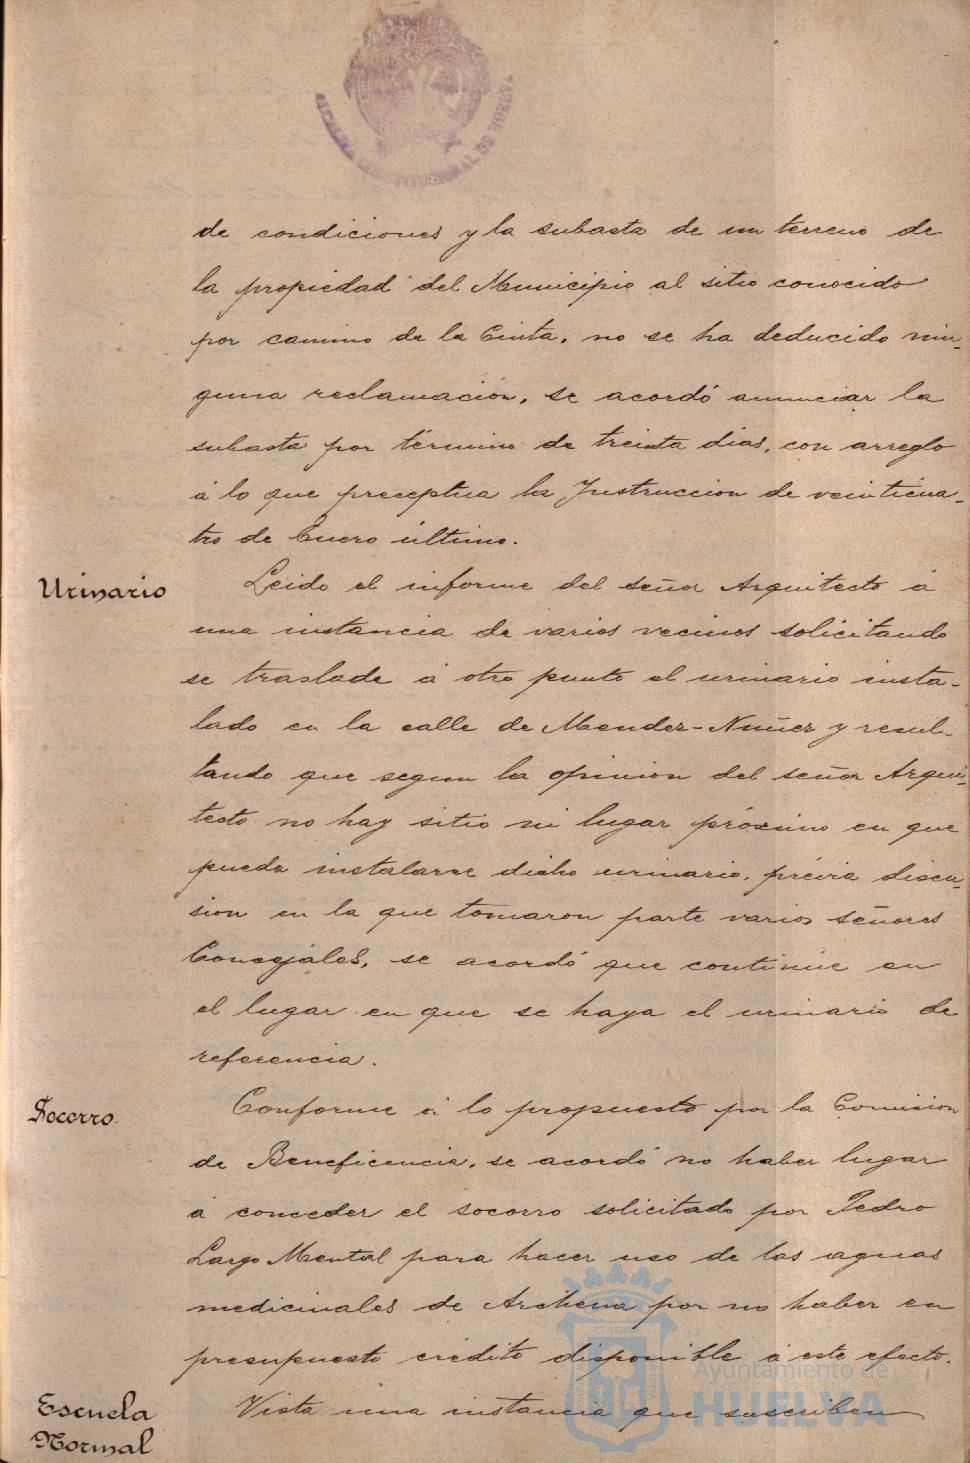 ALCALDIA CONSTITUCIONAL DE HUELVA
de condiciones y la subasta de un terreno de
la propiedad del Municipio al sitio conocido
por camino de la Cinta, no se ha deducido nin-
guna reclamación, se acordó anunciar la
subasta por término de treinta dias, con arreglo
á lo que preceptua la Instruccion de veinticua-
tro de Enero último.
Urinario
Leido el informe del señor Arquitecto á
una instancia de varios vecinos solicitando
se traslade á otro punto el urinario insta-
lado en la calle de Mendez-Nuñez y resul-
tando que segun la opinion del señor Arqui-
tecto no hay sitio ni lugar próximo en que
pueda instalarse dicho urinario, prévia discu-
sion en la que tomaron parte varios señores
Concejáles, se acordó que continúe en
el lugar en que se haya el urinario de
referencia.
Socorro
Conforme á lo propuesto por la Comision
de Beneficencia, se acordó no haber lugar
á conceder el socorro solicitado por Pedro
Largo Mental para hacer uso de las aguas
medicinales de Archena por no haber en
presupuesto crédito disponible á este efecto.
Escuela
Normal
Vista una instancia que suscriben
Ayuntamiento de
HUELVA